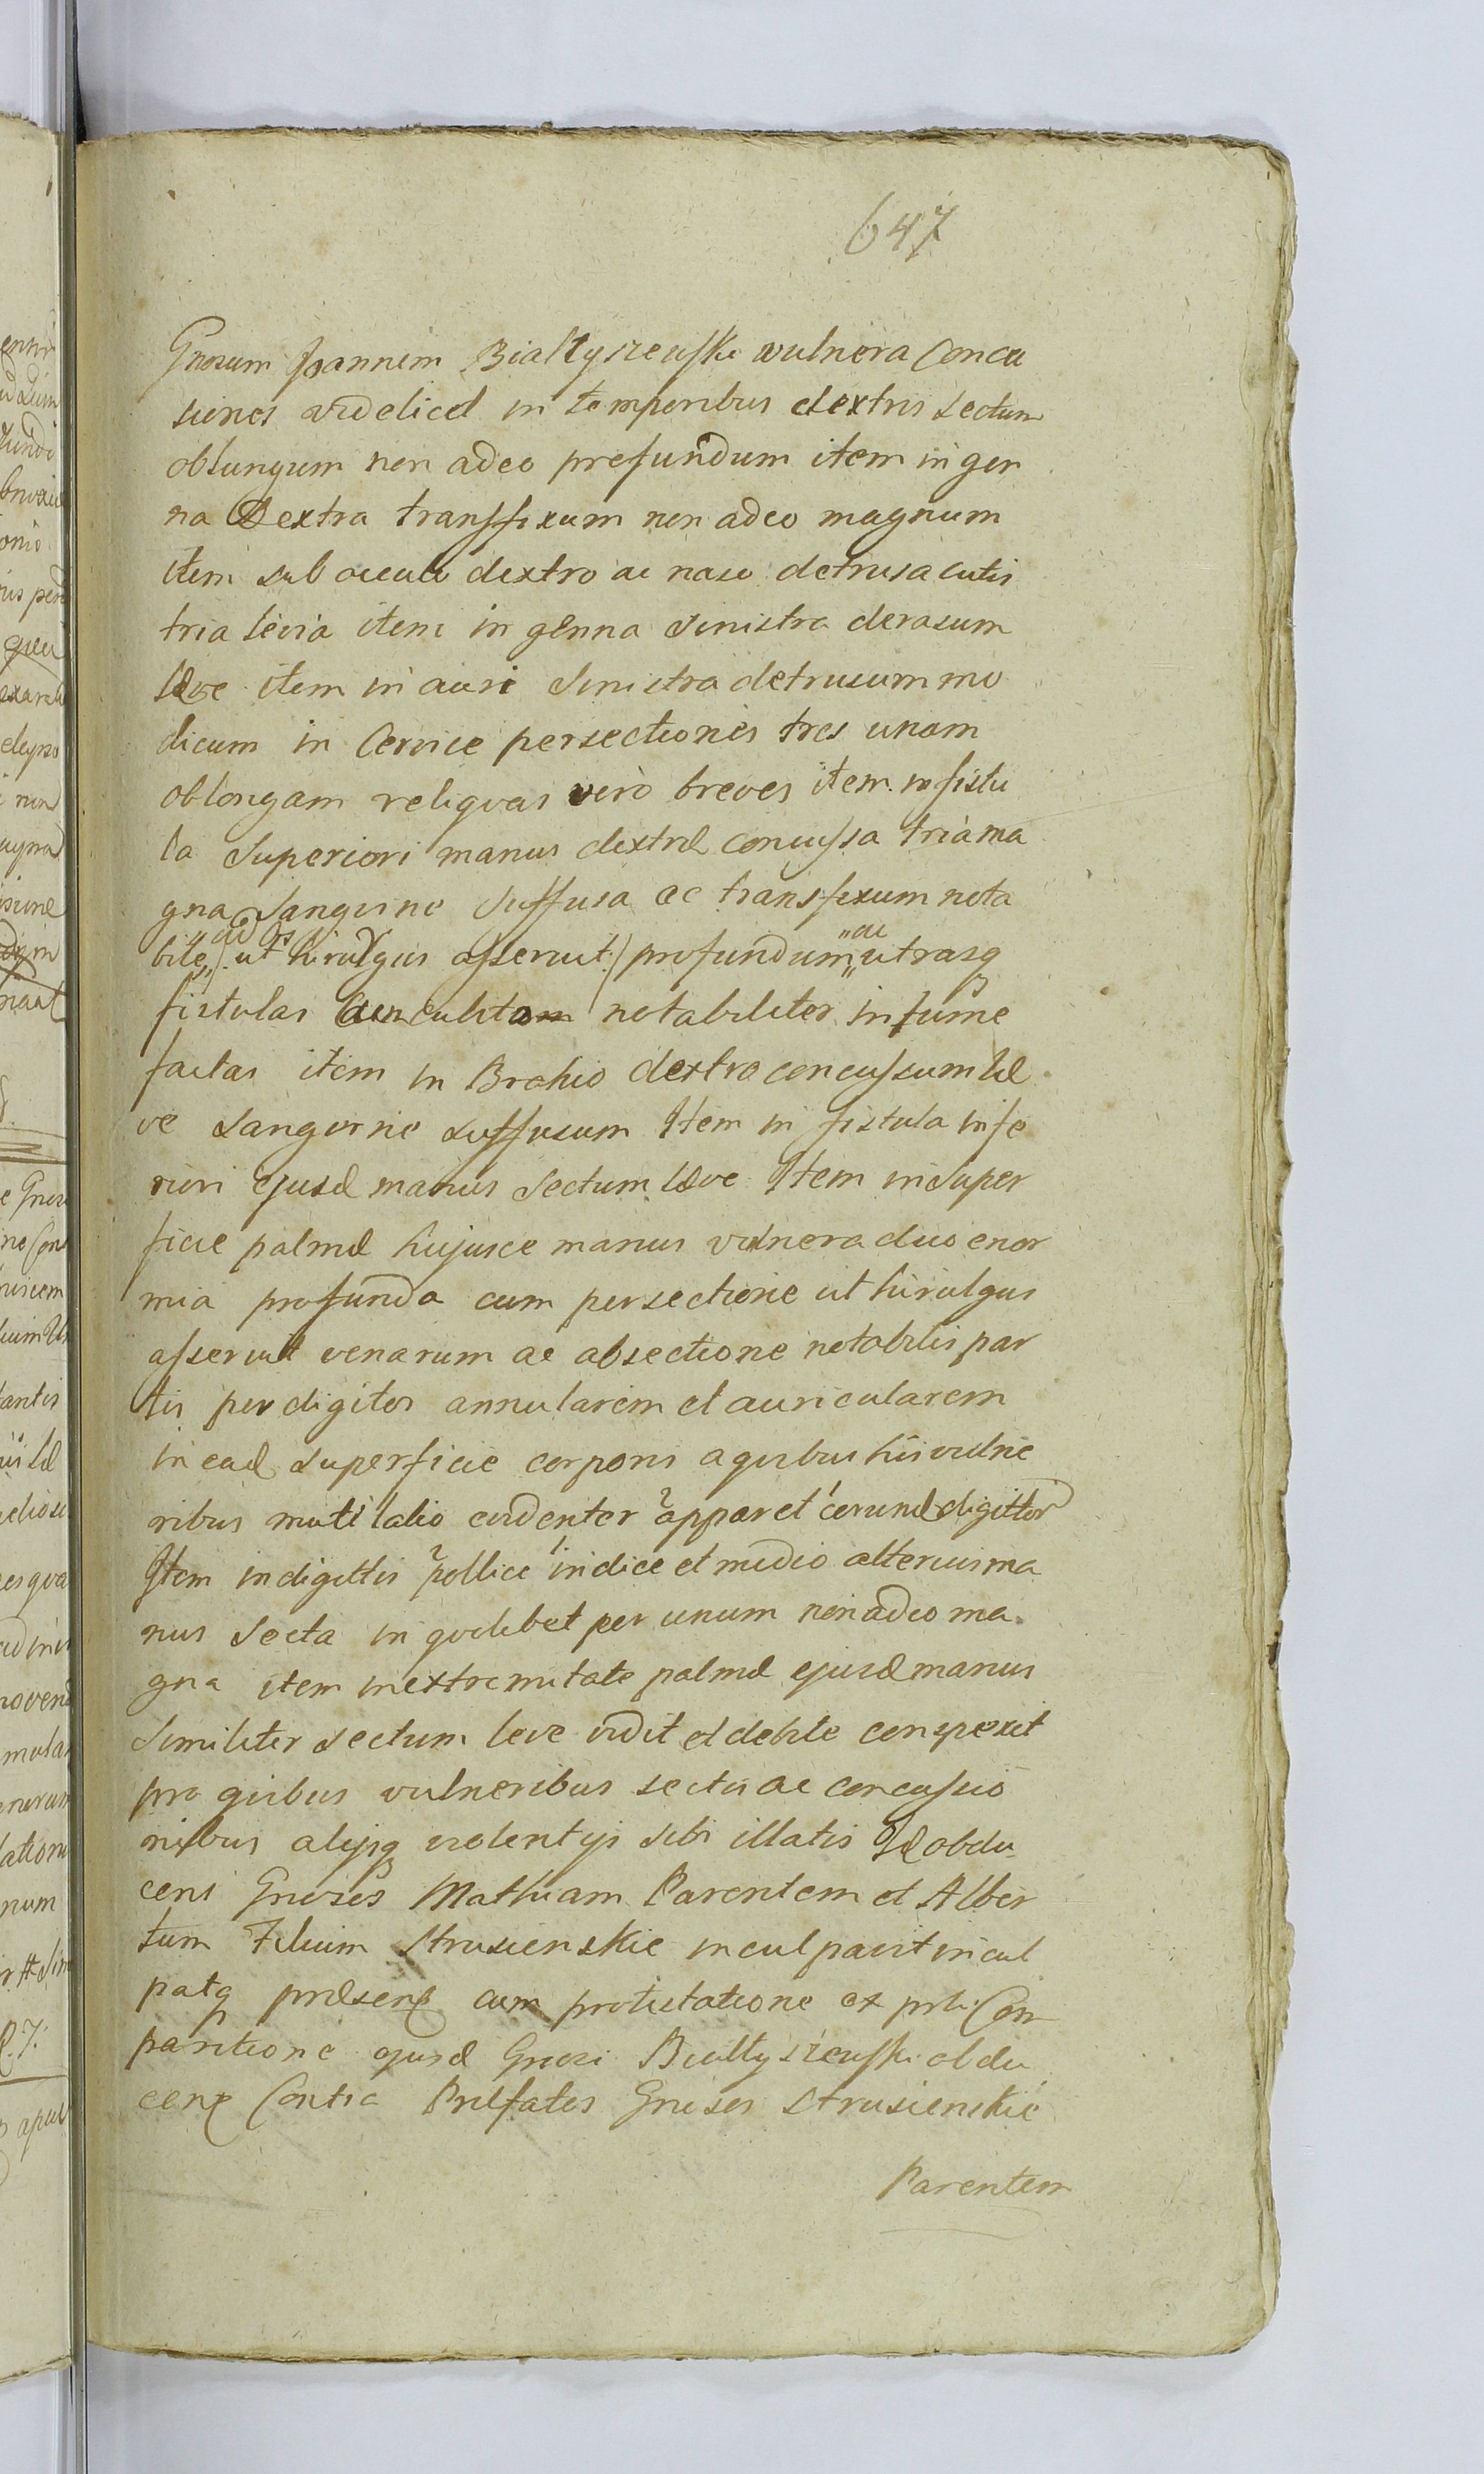 647
Gnosum Joannem Bialtyszewski vulnera concu
siones videlicet in temporibus dextris sectum
oblungum non adeo profundum item in gen
na Dextra transfixum non adeo magnum
item sub oculo dextro ac naso detrusa cutis
tria levia item in genna sinistra derasum
leve item in auri sinistra detrusum mo
dicum in Cervice persectiones tres unam
oblongam reliqvas vero breves item in fistu
la Superiori manus dextræ concussa tria ma
gna Sangvine Suffusa ac transfixum nota
bile ad os (ut hirulgus asseruit) profundum ac utrasq
fistulas notabiliter intume
factas item in Brahio dextro concussum le
ve Sangvine suffusum Item in fistula infe
riori ejusd manus Sectum leve Item in Super
ficie palmæ hujusce manus vulnera duo enor
mia profunda cum persectione ut hirulgus
asseruit venarum ac absectione notabilis par
tis per digitos annularem et auricularem
in ead superficie corporis a qvibus his vulne
ribus mutilatio evidenter apparet eorund digittor
Item in digittis pollice indice et medio alterius ma
nus Secta in qvolibet per unum non adeo ma
gna item in extremitate palmæ ejusd manus
Similiter sectum leve vidit et debite conspexit
pro qvibus vulneribus sectis ac concussio
nibus alijsq violentijs sibi illatis Idem obdu
cens Gnosos Mathiam Parentem et Alber
tum Filium Strusienskie inculpavit incul
patq præsens cum protestatione ex prti Com
paritione ejusd Gnosi Bialtyszewski obdu
cens Contra Præfatos Gnosos Strusienskie
Parentem